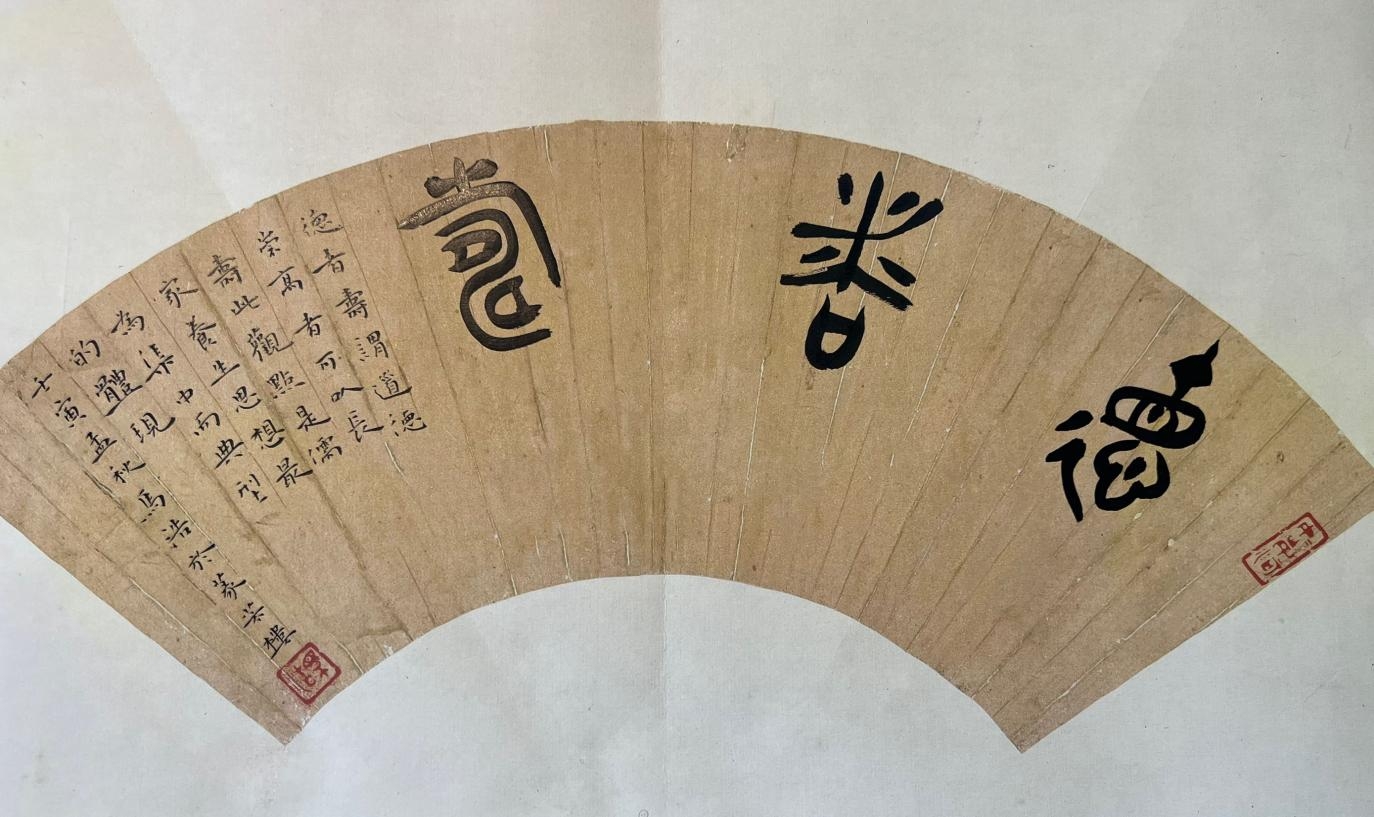 德者壽
德者壽謂道德
崇高者可以長
壽此觀點是儒
家養生思想最
為集中而典型
的體現
壬寅孟秋馬浩於篆樓